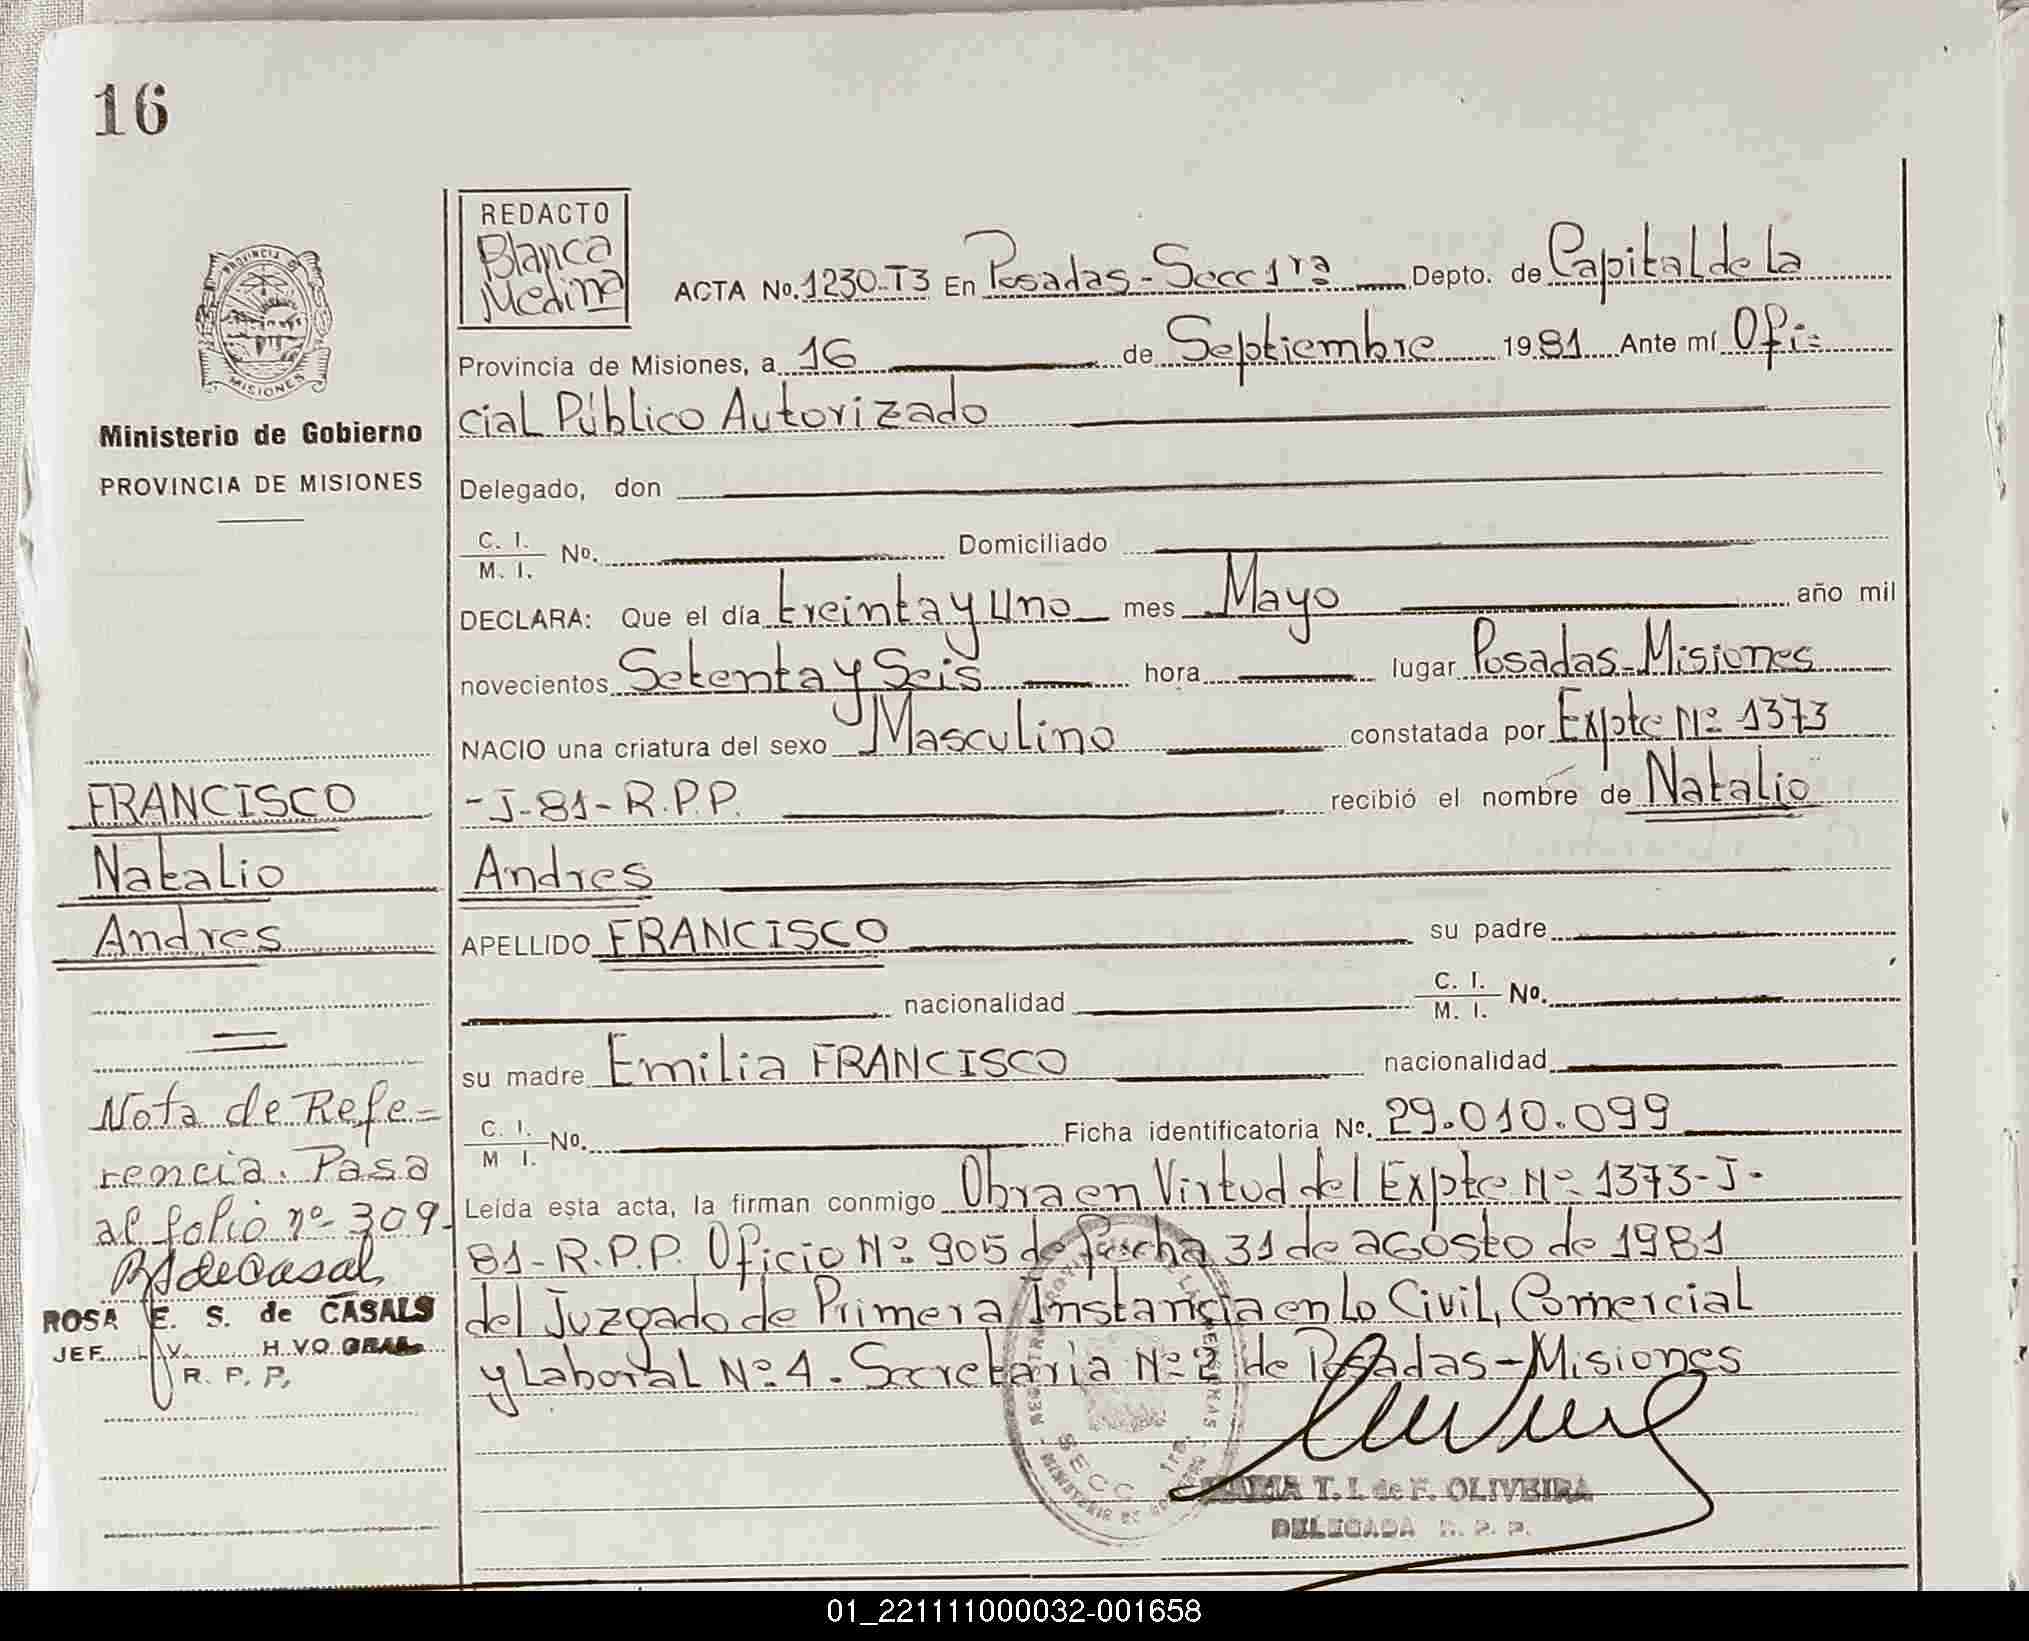 16
REDACTO
Blanca
Medina
ACTA No. 1230-T3 En Posadas - Secc 1ra Depto. de Capital de la
Provincia de Misiones, a 16 de Septiembre 1981 Ante mí Ofi=
cial Público Autorizado
Delegado, don
C. I.
M. I. No. Domiciliado
DECLARA: Que el día treinta y Uno mes Mayo año mil
novecientos Setenta y Seis hora lugar Posadas-Misiones
NACIO una criatura del sexo Masculino constatada por Expte Nº 1373
-J-81-R.P.P. recibió el nombre de Natalio
Andres
APELLIDO FRANCISCO su padre
nacionalidad C. I.
M. I. No.
su madre Emilia FRANCISCO nacionalidad
C. I.
M I. No. Ficha identificatoria No. 29.010.099
Leída esta acta, la firman conmigo Obra en Virtud del Expte Nº 1373-J-
81-R.P.P. Oficio Nº 905 de fecha 31 de agosto de 1981
del Juzgado de Primera Instancia en Lo Civil, Comercial
y Laboral Nº 4. Secretaria Nº 2 de Posadas-Misiones
T. I. de F. OLIVEIRA
DELEGADA R. P. P.
SECC. 1ra.
PROVINCIA DE
MISIONES
Ministerio de Gobierno
PROVINCIA DE MISIONES
FRANCISCO
Natalio
Andres
Nota de Refe=
rencia. Pasa
al folio nº 309-
ROSA E. S. de CASALS
R. P. P.
01_221111000032-001658